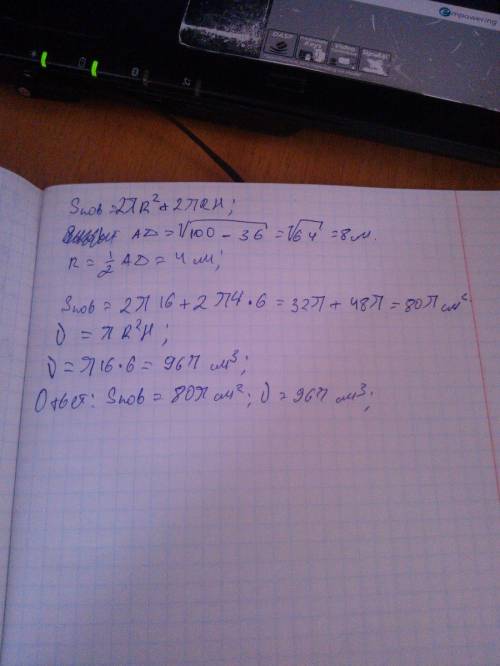 empowering
DASP
Sпов = 2πR² + 2πRH;
AD = √100 - 36 = √64 = 8 м.
R = 1/2 AD = 4 м;
Sпов = 2π16 + 2π4·6 = 32π + 48π = 80π см²
V = πR²H;
V = π16·6 = 96π см³;
Ответ: Sпов = 80π см²; V = 96π см³;